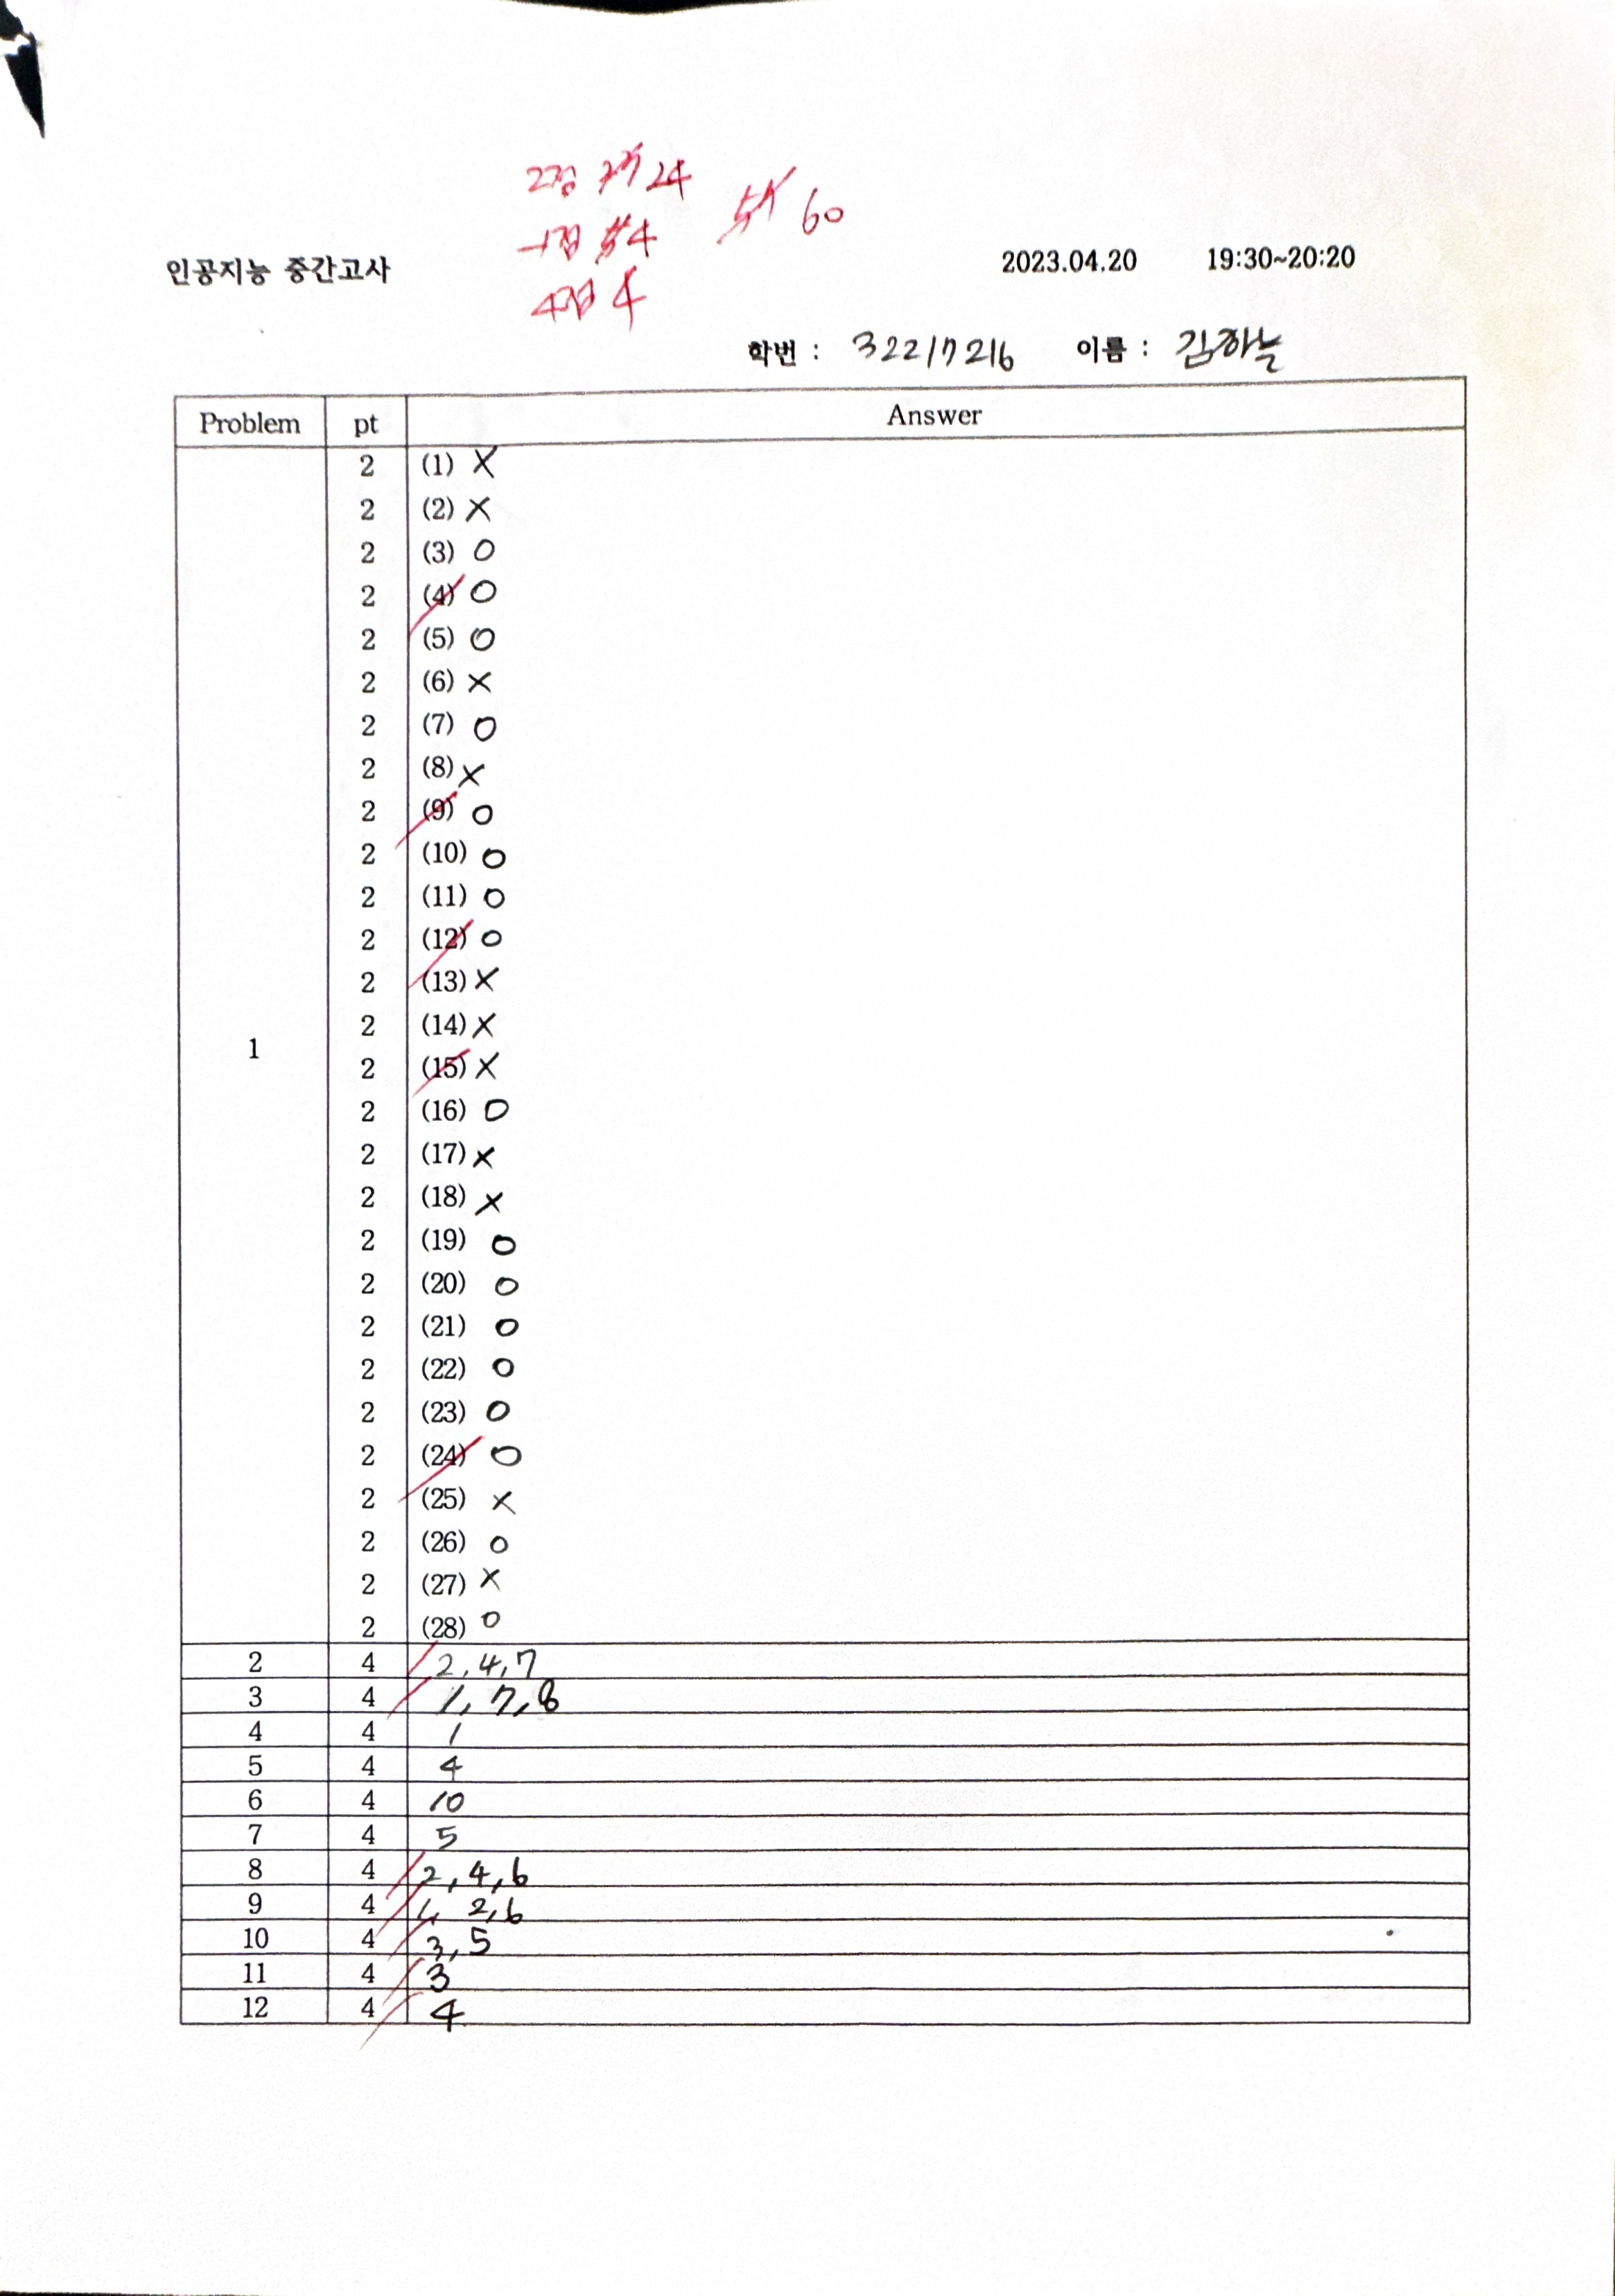 2점 24
-1점 4 60
4점 4
인공지능 중간고사 2023.04.20 19:30~20:20
학번 : 32217216 이름 : 김하늘
Problem pt Answer
1
2 (1) X
2 (2) X
2 (3) O
2 (4) O
2 (5) O
2 (6) X
2 (7) O
2 (8) X
2 (9) O
2 (10) O
2 (11) O
2 (12) O
2 (13) X
2 (14) X
2 (15) X
2 (16) O
2 (17) X
2 (18) X
2 (19) O
2 (20) O
2 (21) O
2 (22) O
2 (23) O
2 (24) O
2 (25) X
2 (26) O
2 (27) X
2 (28) O
2 4 2, 4, 7
3 4 1, 7, 8
4 4 1
5 4 4
6 4 10
7 4 5
8 4 2, 4, 6
9 4 1, 2, 6
10 4 3, 5
11 4 3
12 4 4